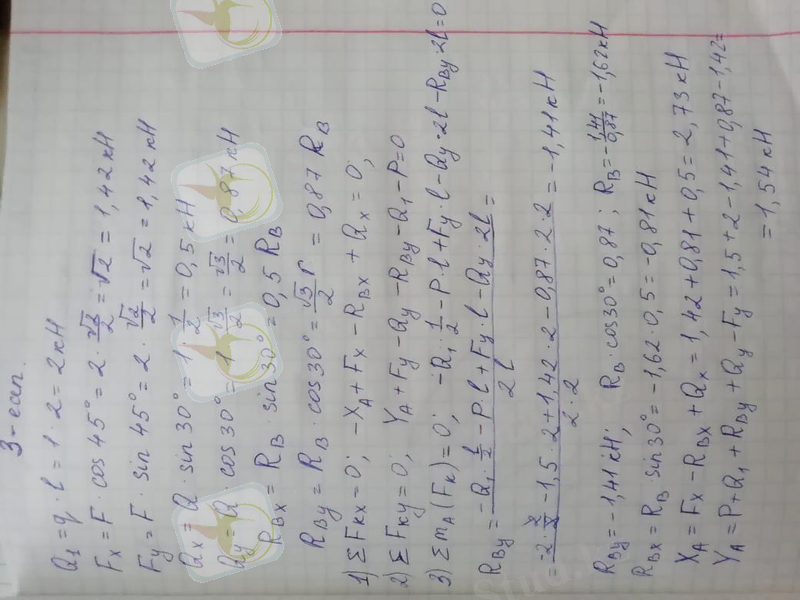 3-есеп.
Q₁ = q · l = 1 · 2 = 2 кН
Fx = F · cos 45° = 2 · √2/2 = √2 = 1,42 кН
Fy = F · sin 45° = 2 · √2/2 = √2 = 1,42 кН
Qx = Q · sin 30° = 1 · 1/2 = 0,5 кН
Qy = Q · cos 30° = 1 · √3/2 = √3/2 = 0,87 кН
RBx = RB · sin 30° = 0,5 RB
RBy = RB · cos 30° = √3/2 r = 0,87 RB
1) ΣFкх = 0; -XA + Fx - RBx + Qx = 0;
2) ΣFкy = 0; YA + Fy - Qy - RBy - Q₁ - P = 0
3) ΣmA(Fк) = 0; -Q₁ · l/2 - P · l + Fy · l - Qy · 2l - RBy · 2l = 0
RBy = (-Q₁ · l/2 - P · l + Fy · l - Qy · 2l)/(2l) =
= (-2 · 2/2 - 1,5 · 2 + 1,42 · 2 - 0,87 · 2 · 2)/(2 · 2) = -1,41 кН
RBy = -1,41 кН; RB · cos 30° = 0,87; RB = -1,41/0,87 = -1,62 кН
RBx = RB sin 30° = -1,62 · 0,5 = -0,81 кН
XA = Fx - RBx + Qx = 1,42 + 0,81 + 0,5 = 2,73 кН
YA = P + Q₁ + RBy + Qy - Fy = 1,5 + 2 - 1,41 + 0,87 - 1,42 =
= 1,54 кН